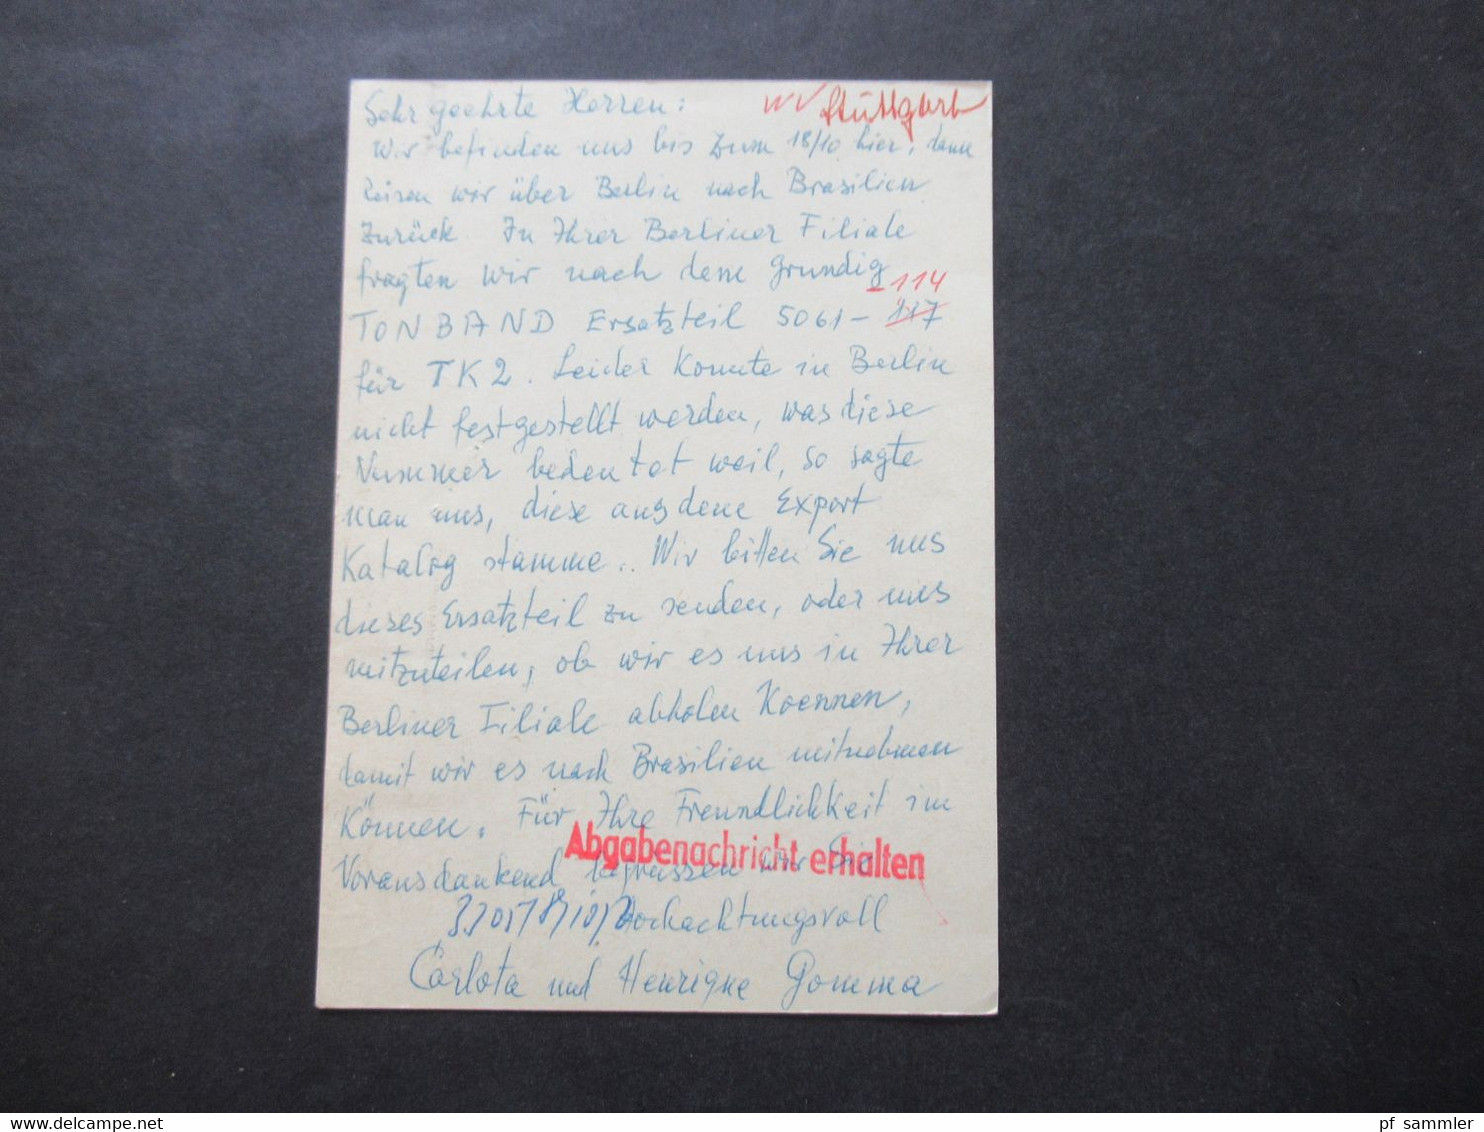 Sehr geehrte Herren: Stuttgart
Wir befinden uns bis zum 18/10 hier, dann
reisen wir über Berlin nach Brasilien
zurück. In Ihrer Berliner Filiale
fragten wir nach dem Grundig
-114
TONBAND Ersatzteil 5061-117
für TK2. Leider konnte in Berlin
nicht festgestellt werden, was diese
Nummer bedeutet weil, so sagte
man uns, diese aus dem Export
Katalog stamme.. Wir bitten Sie uns
dieses Ersatzteil zu senden, oder uns
mitzuteilen, ob wir es uns in Ihrer
Berliner Filiale abholen koennen,
damit wir es nach Brasilien mitnehmen
können. Für Ihre Freundlichkeit im
Abgabenachricht erhalten
Vorausdankend begrüssen wir Sie
Hochachtungsvoll
Carlota und Henrique Gomma
delcampe.net
pf_sammler